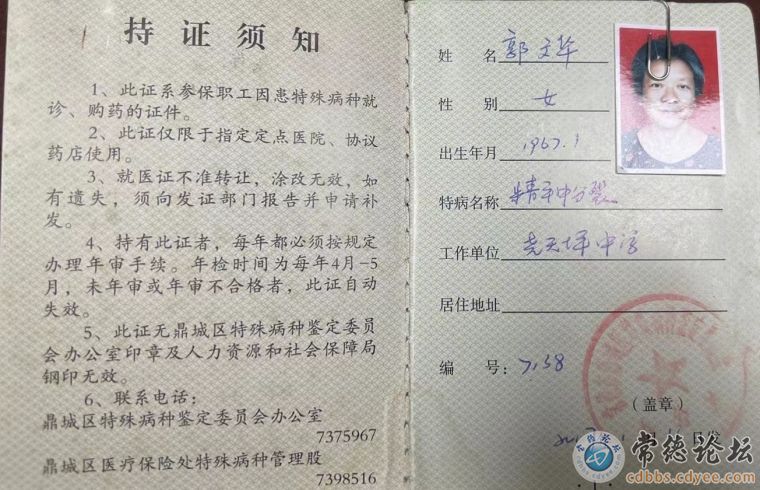 持证须知
1、此证系参保职工因患特殊病种就
诊、购药的证件。
2、此证仅限于指定定点医院、协议
药店使用。
3、就医证不准转让，涂改无效，如
有遗失，须向发证部门报告并申请补
发。
4、持有此证者，每年都必须按规定
办理年审手续。年检时间为每年4月-5
月，未年审或年审不合格者，此证自动
失效。
5、此证无鼎城区特殊病种鉴定委员
会办公室印章及人力资源和社会保障局
钢印无效。
6、联系电话：
鼎城区特殊病种鉴定委员会办公室
7375967
鼎城区医疗保险处特殊病种管理股
7398516
姓 名 郭文华
性 别 女
出生年月 1967.1
特病名称 精神分裂
工作单位 尧天坪中学
居住地址
编 号：7138
（盖章）
月 16日发
常德论坛
cdbbs.cdyee.com